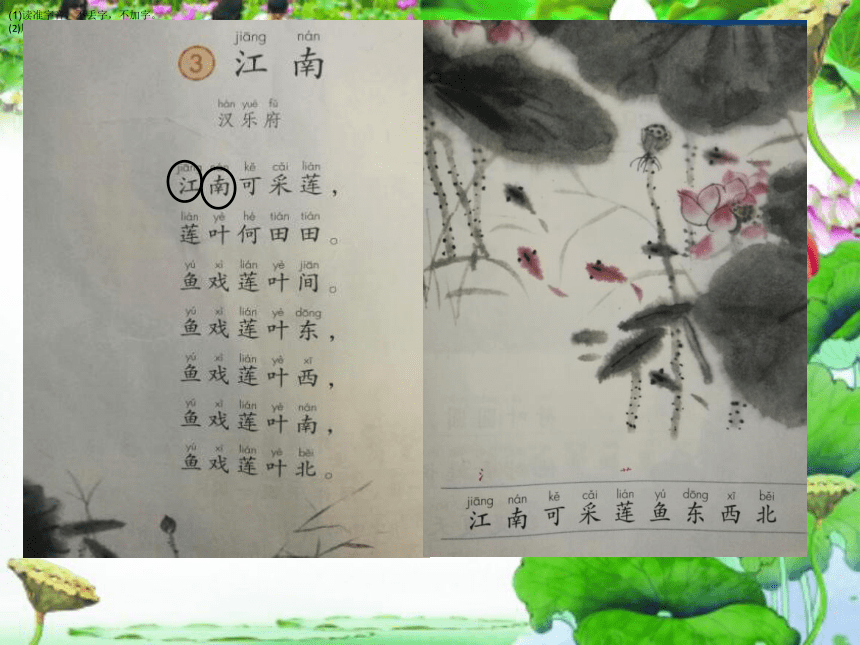 (1)读准字 丢字,不加字
(2)
jiāng nán
3 江 南
hàn yuè fǔ
汉 乐 府
jiāng nán kě cǎi lián
江 南 可 采 莲,
lián yè hé tián tián
莲 叶 何 田 田。
yú xì lián yè jiān
鱼 戏 莲 叶 间。
yú xì lián yè dōng
鱼 戏 莲 叶 东,
yú xì lián yè xī
鱼 戏 莲 叶 西,
yú xì lián yè nán
鱼 戏 莲 叶 南,
yú xì lián yè běi
鱼 戏 莲 叶 北。
氵 艹
jiāng nán kě cǎi lián yú dōng xī běi
江 南 可 采 莲 鱼 东 西 北